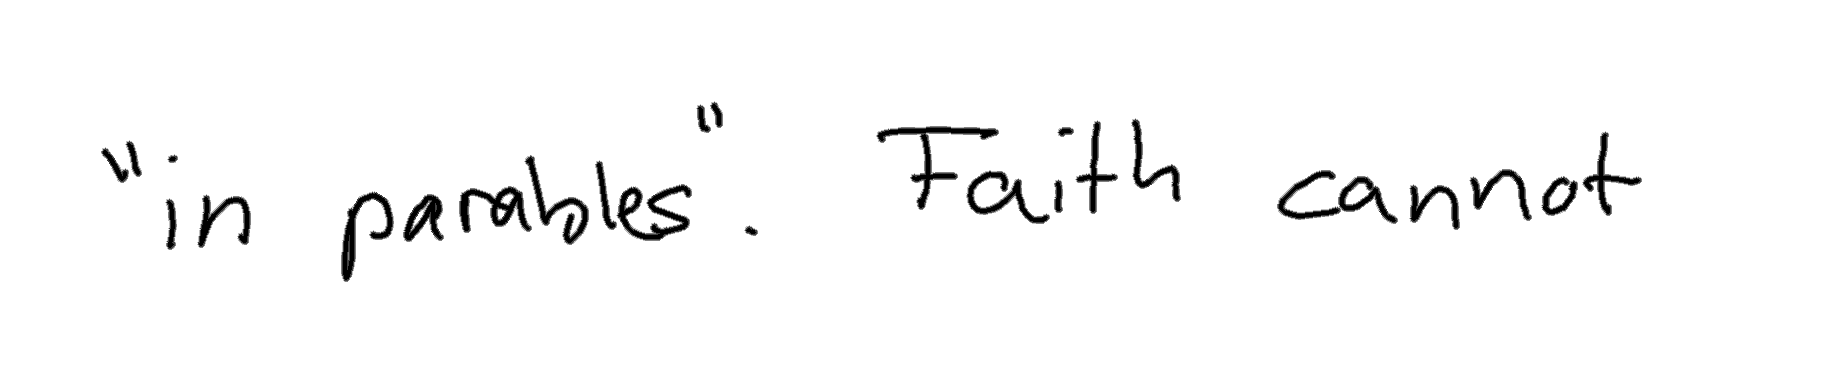 "in parables". Faith cannot